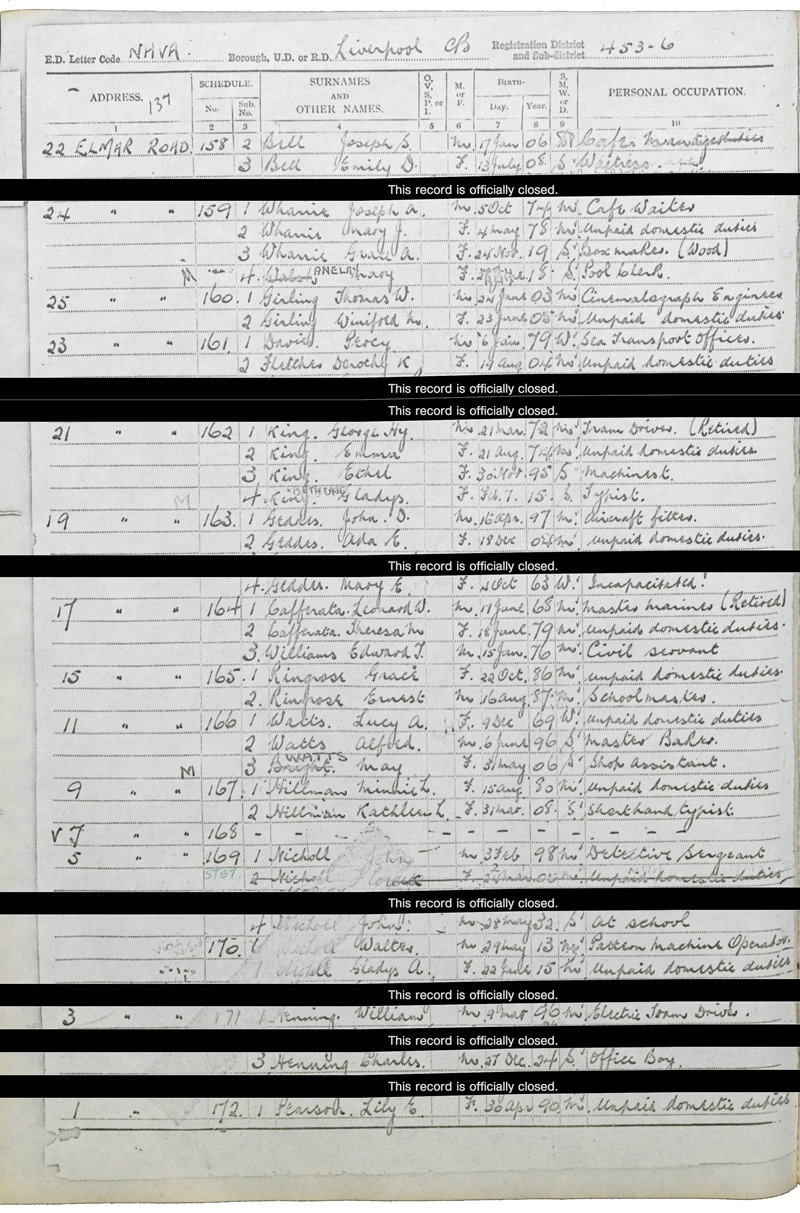 E.D. Letter Code NHVA. Borough, U.D. or R.D. Liverpool CB Registration District and Sub-district 453-6
ADDRESS. 137 SCHEDULE. No. Sub. No. SURNAMES AND OTHER NAMES. O, V, S, P, or I. M. or F. BIRTH- Day. Year. S, M, W, or D. PERSONAL OCCUPATION.
1 2 3 4 5 6 7 8 9 10
22 ELMAR ROAD. 158 2 Bell Joseph S. M. 17 Jan 06 Cafe
3 Bell Emily D. F. 13 July 08. S Waitress.
This record is officially closed.
24 " " 159 1 Wharrie Joseph A. M. 5 Oct 74 M. Cafe Waiter
2 Wharrie Mary J. F. 4 May 78 M. Unpaid domestic duties
3 Wharrie Grace A. F. 24 Nov. 19 S. Boxmaker. (Wood)
M 4. Mary F. 18. S. Pool Clerk.
25 " " 160. 1 Girling Thomas W. M. 24 June 03 M. Cinematograph Engineer
2 Girling Winifred M. F. 23 June 05 M. Unpaid domestic duties
23 " " 161. 1 Davies Percy M. 6 Jan. 79 W. Sea Transport Officer.
2 Fletcher Dorothy K. F. 19 Aug 04 M. Unpaid domestic duties
This record is officially closed.
This record is officially closed.
21 " " 162 1 King. George Hy. M. 21 Mar. 72 M. Tram Driver. (Retired)
2 King. Emma F. 21 Aug. 74 M. Unpaid domestic duties
3 King. Ethel F. 30 Nov. 95 S Machinist.
M 4. King. BETHUNE Gladys. F. Feb. 7. 15. S. Typist.
19 " " 163. 1 Geddes. John. D. M. 16 Apr. 97 M. Aircraft fitter.
2 Geddes. Ada E. F. 18 Dec 04 M. Unpaid domestic duties.
This record is officially closed.
4. Geddes. Mary E. F. 4 Oct 63 W. Incapacitated.
17 " " 164 1 Cafferata. Leonard W. M. 17 June 68 M. Master Mariner (Retired)
2 Cafferata. Theresa M F. 18 June. 79 M. Unpaid domestic duties.
3. Williams Edward T. M. 15 Jan. 76 M. Civil servant
15 " " 165. 1 Ringrose Grace F. 22 Oct. 86 M. Unpaid domestic duties.
2. Ringrose Ernest M 16 Aug. 87 M. Schoolmaster.
11 " " 166 1 Watts. Lucy A. F. 9 Dec 69 W. Unpaid domestic duties
2 Watts Alfred. M. 6 June 96 S. Master Baker.
M 3 Bright. WATTS May F. 31 May 06 S. Shop Assistant.
9 " " 167. 1 Hillman Minnie L. F. 15 Aug. 80 M. Unpaid domestic duties
2 Hillman Kathleen L. F. 31 Mar. 08. S. Shorthand typist
V 7 " " 168 - - - - - - - -
5 " " 169 1 Nicholl John M 3 Feb 98 M. Detective Sergeant
STET. 2 Nicholl F. Unpaid domestic duties
This record is officially closed.
4 Nicholl John. M. 28 May 32. S. At school
170. Walter. M. 29 May 13 M. Pattern Machine Operator.
Gladys A. F. 22 June 15 M. Unpaid domestic duties
This record is officially closed.
3 " " 171 1 Henning. William M. 9 Mar 96 M. Electric Tram Driver.
This record is officially closed.
3 Henning Charles. M. 27 Dec. 24 S. Office Boy.
This record is officially closed.
1 " 172. 1 Pearson. Lily E. F. 30 Apr 90 M. Unpaid domestic duties